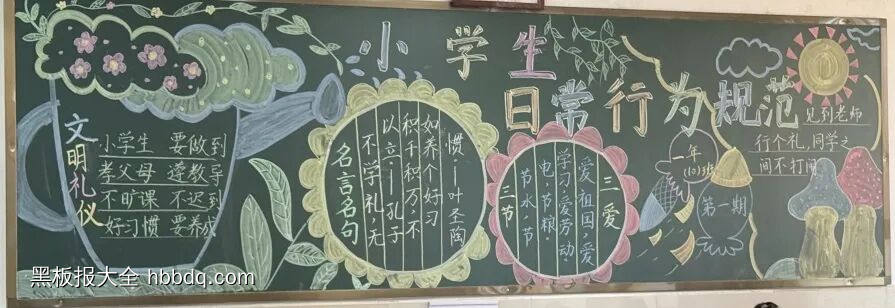 小学生
日常行为规范
文明礼仪
小学生 要做到
孝父母 遵教导
不旷课 不迟到
好习惯 要养成
名言名句
不学礼,无
以立.——孔子
积千积万,不
如养个好习
惯.——叶圣陶
三节
节水,节
电,节粮.
三爱
爱祖国,爱
学习,爱劳动.
一年
(10)班
第一期
见到老师
行个礼,同学之
间不打闹
黑板报大全 hbbdq.com